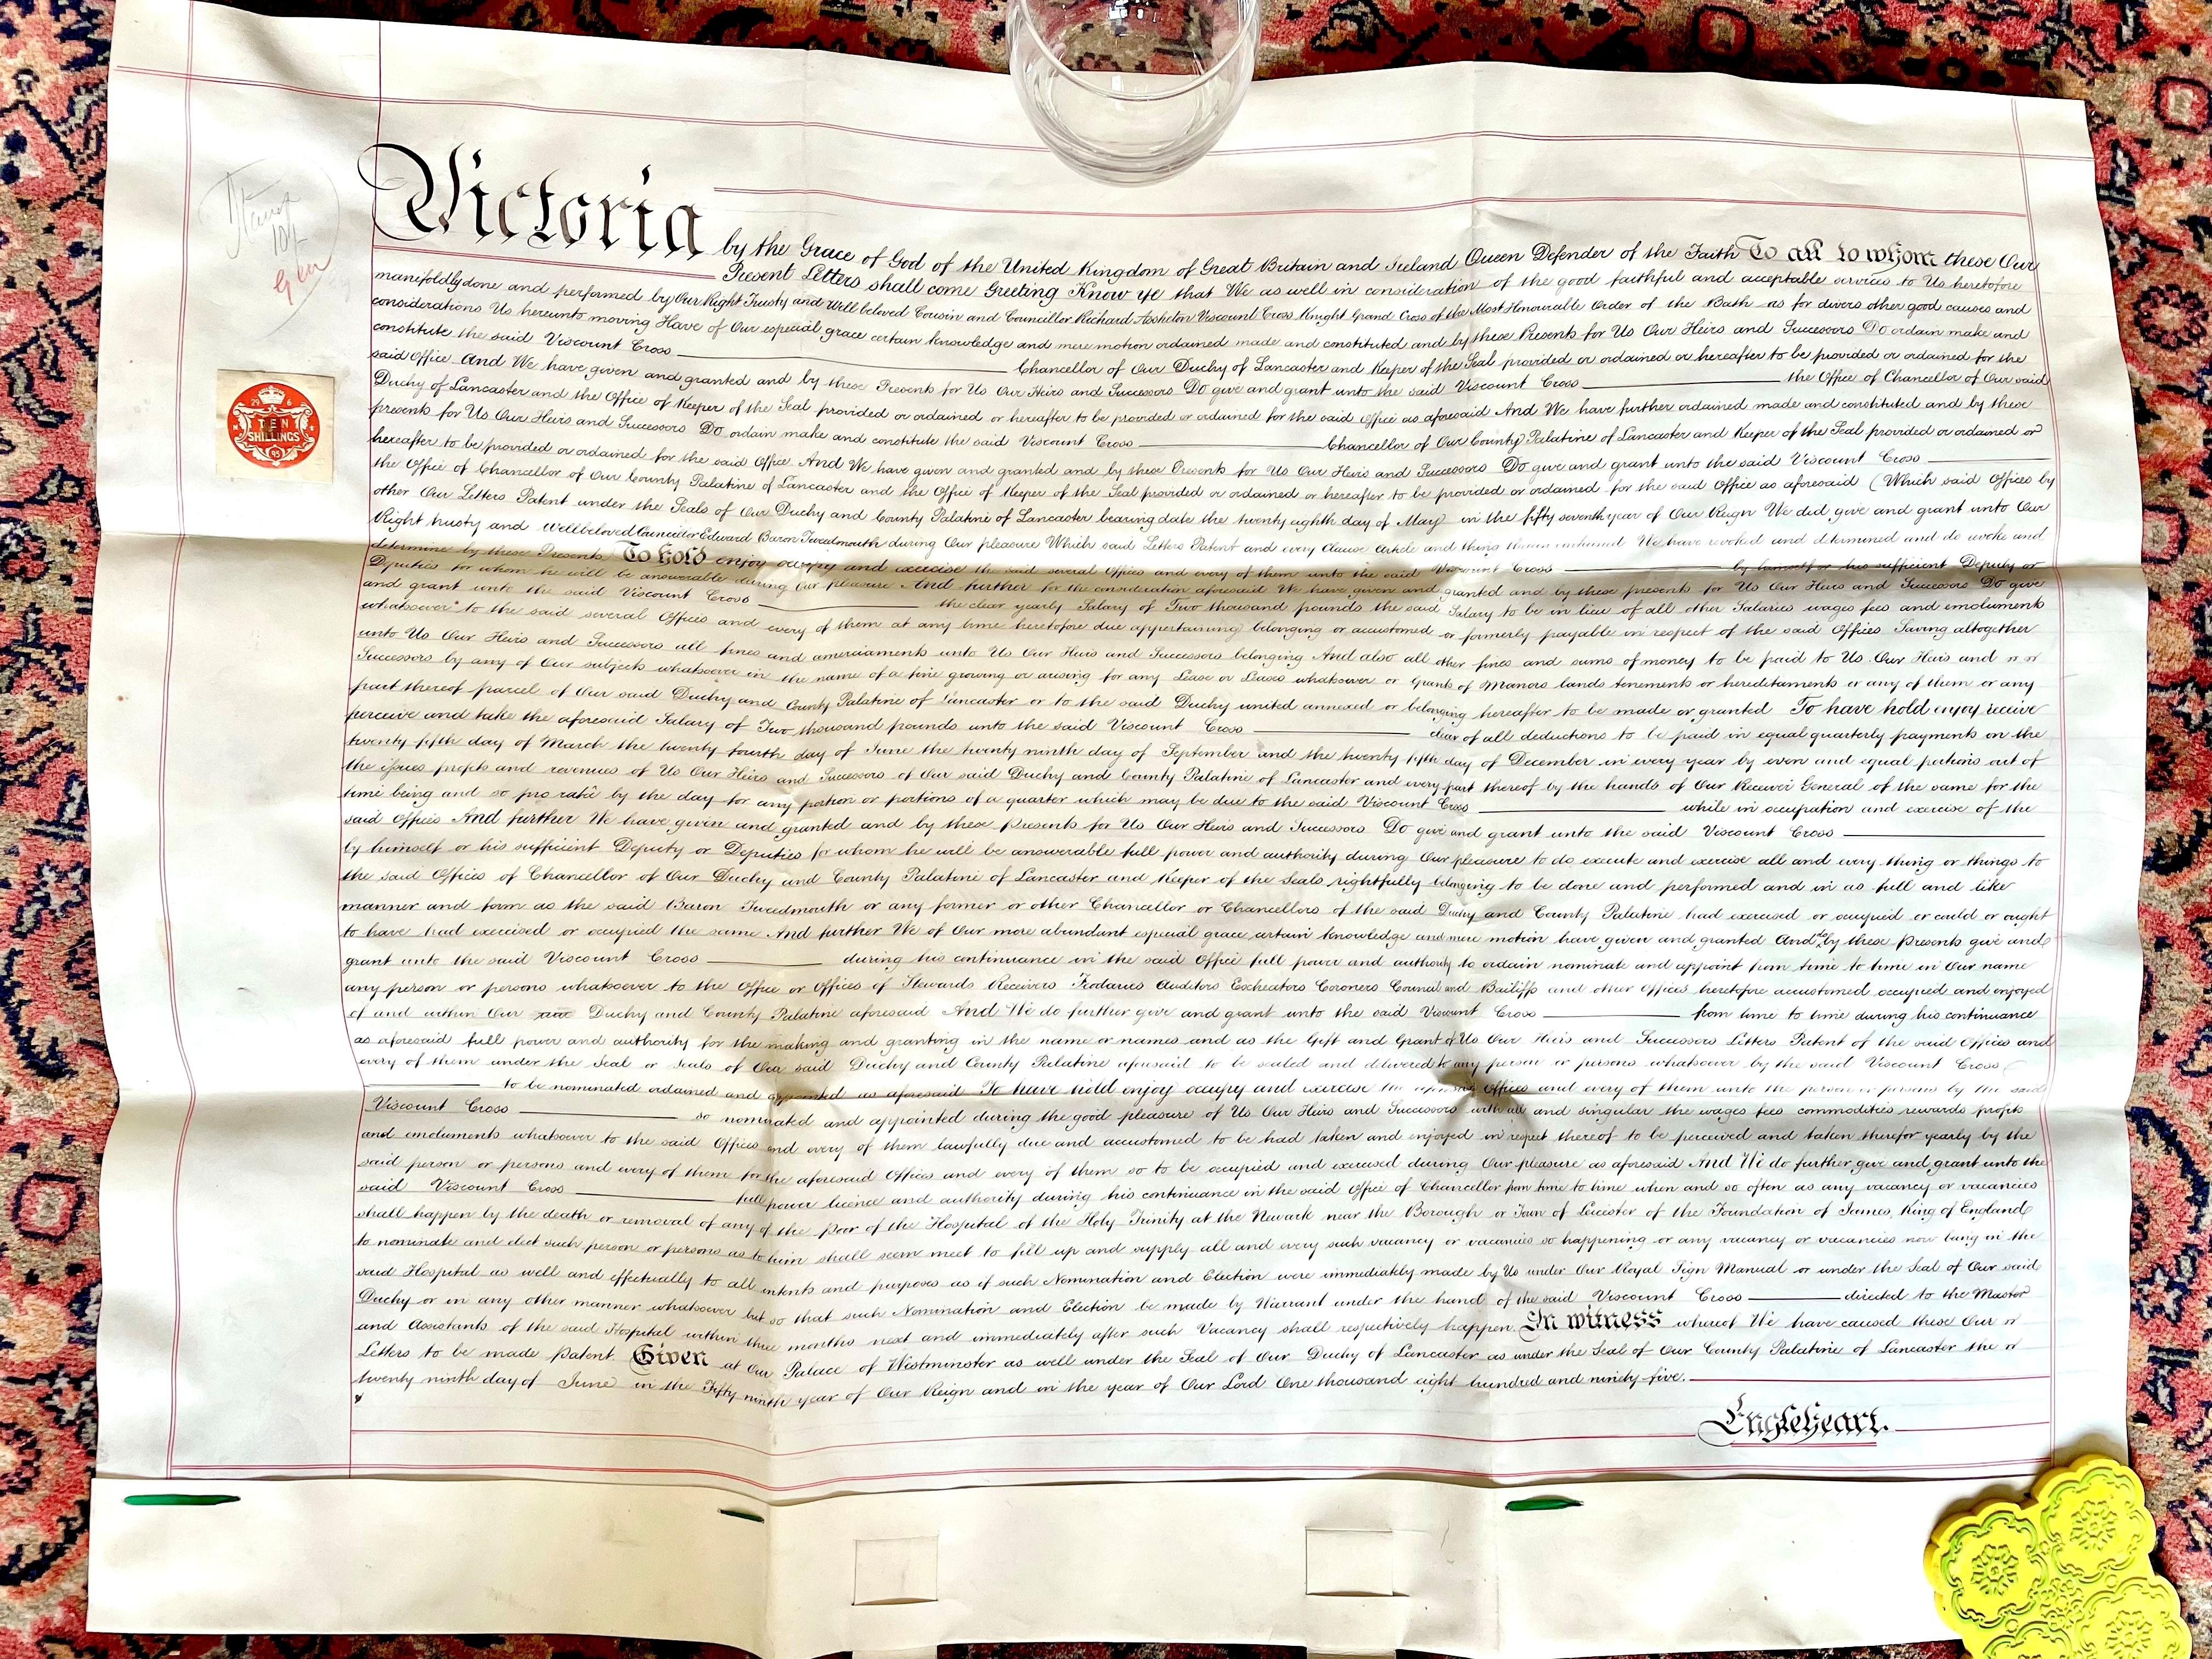 Stamp
10/-
Victoria by the Grace of God of the United Kingdom of Great Britain and Ireland Queen Defender of the Faith To all to whom these Our
Present Letters shall come Greeting Know ye that We as well in consideration of the good faithful and acceptable services to Us heretofore
manifoldly done and performed by Our Right Trusty and Well beloved Cousin and Councillor Richard Assheton Viscount Cross Knight Grand Cross of the Most Honourable Order of the Bath as for divers other good causes and
considerations Us hereunto moving Have of Our especial grace certain knowledge and mere motion ordained made and constituted and by these Presents for Us Our Heirs and Successors Do ordain make and
constitute the said Viscount Cross Chancellor of Our Duchy of Lancaster and Keeper of the Seal provided or ordained or hereafter to be provided or ordained for the
said Office And We have given and granted and by these Presents for Us Our Heirs and Successors Do give and grant unto the said Viscount Cross the Office of Chancellor of Our said
Duchy of Lancaster and the Office of Keeper of the Seal provided or ordained or hereafter to be provided or ordained for the said Office as aforesaid And We have further ordained made and constituted and by these
presents for Us Our Heirs and Successors Do ordain make and constitute the said Viscount Cross Chancellor of Our County Palatine of Lancaster and Keeper of the Seal provided or ordained or
hereafter to be provided or ordained for the said Office And We have given and granted and by these Presents for Us Our Heirs and Successors Do give and grant unto the said Viscount Cross
the Office of Chancellor of Our County Palatine of Lancaster and the Office of Keeper of the Seal provided or ordained or hereafter to be provided or ordained for the said Office as aforesaid (Which said Offices by
other Our Letters Patent under the Seals of Our Duchy and County Palatine of Lancaster bearing date the twenty eighth day of May in the fifty seventh year of Our Reign We did give and grant unto Our
Right trusty and wellbeloved Councillor Edward Baron Tweedmouth during Our pleasure Which said Letters Patent and every Clause Article and thing therein contained We have revoked and determined and do revoke and
determine by these Presents To hold enjoy occupy and exercise the said several Offices and every of them unto the said Viscount Cross by himself or his sufficient Deputy or
Deputies for whom he will be answerable during Our pleasure And further for the consideration aforesaid We have given and granted and by these presents for Us Our Heirs and Successors Do give
and grant unto the said Viscount Cross the clear yearly Salary of Two thousand pounds the said Salary to be in lieu of all other Salaries wages fees and emoluments
whatsoever to the said several Offices and every of them at any time heretofore due appertaining belonging or accustomed or formerly payable in respect of the said Offices Saving altogether
unto Us Our Heirs and Successors all fines and amerciaments unto Us Our Heirs and Successors belonging And also all other fines and sums of money to be paid to Us Our Heirs and
Successors by any of Our subjects whatsoever in the name of a fine growing or arising for any Lease or Leases whatsoever or Grants of Manors lands tenements or hereditaments or any of them or any
part thereof parcel of Our said Duchy and County Palatine of Lancaster or to the said Duchy united annexed or belonging hereafter to be made or granted To have hold enjoy receive
perceive and take the aforesaid Salary of Two thousand pounds unto the said Viscount Cross clear of all deductions to be paid in equal quarterly payments on the
twenty fifth day of March the twenty fourth day of June the twenty ninth day of September and the twenty fifth day of December in every year by even and equal portions out of
the issues profits and revenues of Us Our Heirs and Successors of Our said Duchy and County Palatine of Lancaster and every part thereof by the hands of Our Receiver General of the same for the
time being and so pro rata by the day for any portion or portions of a quarter which may be due to the said Viscount Cross while in occupation and exercise of the
said Offices And further We have given and granted and by these Presents for Us Our Heirs and Successors Do give and grant unto the said Viscount Cross
by himself or his sufficient Deputy or Deputies for whom he will be answerable full power and authority during Our pleasure to do execute and exercise all and every thing or things to
the said Offices of Chancellor of Our Duchy and County Palatine of Lancaster and Keeper of the Seals rightfully belonging to be done and performed and in as full and like
manner and form as the said Baron Tweedmouth or any former or other Chancellor or Chancellors of the said Duchy and County Palatine had exercised or occupied or could or ought
to have had exercised or occupied the same And further We of Our more abundant especial grace certain knowledge and mere motion have given and granted And do by these Presents give and
grant unto the said Viscount Cross during his continuance in the said Office full power and authority to ordain nominate and appoint from time to time in Our name
any person or persons whatsoever to the Office or Offices of Stewards Receivers Feodaries Auditors Escheators Coroners Council and Bailiffs and other Offices heretofore accustomed occupied and enjoyed
of and within Our Duchy and County Palatine aforesaid And We do further give and grant unto the said Viscount Cross from time to time during his continuance
as aforesaid full power and authority for the making and granting in the name or names and as the Gift and Grant of Us Our Heirs and Successors Letters Patent of the said Offices and
every of them under the Seal or Seals of Our said Duchy and County Palatine aforesaid to be sealed and delivered to any person or persons whatsoever by the said Viscount Cross
to be nominated ordained and appointed as aforesaid To have hold enjoy occupy and exercise the Offices and every of them unto the person or persons by the said
Viscount Cross so nominated and appointed during the good pleasure of Us Our Heirs and Successors with all and singular the wages fees commodities rewards profits
and emoluments whatsoever to the said Offices and every of them lawfully due and accustomed to be had taken and enjoyed in respect thereof to be perceived and taken therefor yearly by the
said person or persons and every of them for the aforesaid Offices and every of them so to be occupied and exercised during Our pleasure as aforesaid And We do further give and grant unto the
said Viscount Cross full power licence and authority during his continuance in the said Office of Chancellor from time to time when and so often as any vacancy or vacancies
shall happen by the death or removal of any of the Poor of the Hospital of the Holy Trinity at the Newark near the Borough or Town of Leicester of the Foundation of James King of England
to nominate and elect such person or persons as to him shall seem meet to fill up and supply all and every such vacancy or vacancies so happening or any vacancy or vacancies now being in the
said Hospital as well and effectually to all intents and purposes as if such Nomination and Election were immediately made by Us under Our Royal Sign Manual or under the Seal of Our said
Duchy or in any other manner whatsoever but so that such Nomination and Election be made by Warrant under the hand of the said Viscount Cross directed to the Master
and Assistants of the said Hospital within three months next and immediately after such Vacancy shall respectively happen In witness whereof We have caused these Our
Letters to be made Patent Given at Our Palace of Westminster as well under the Seal of Our Duchy of Lancaster as under the Seal of Our County Palatine of Lancaster the
twenty ninth day of June in the Fifty ninth year of Our Reign and in the year of Our Lord One thousand eight hundred and ninety five.
Engleheart.
29 6
TEN
SHILLINGS
95